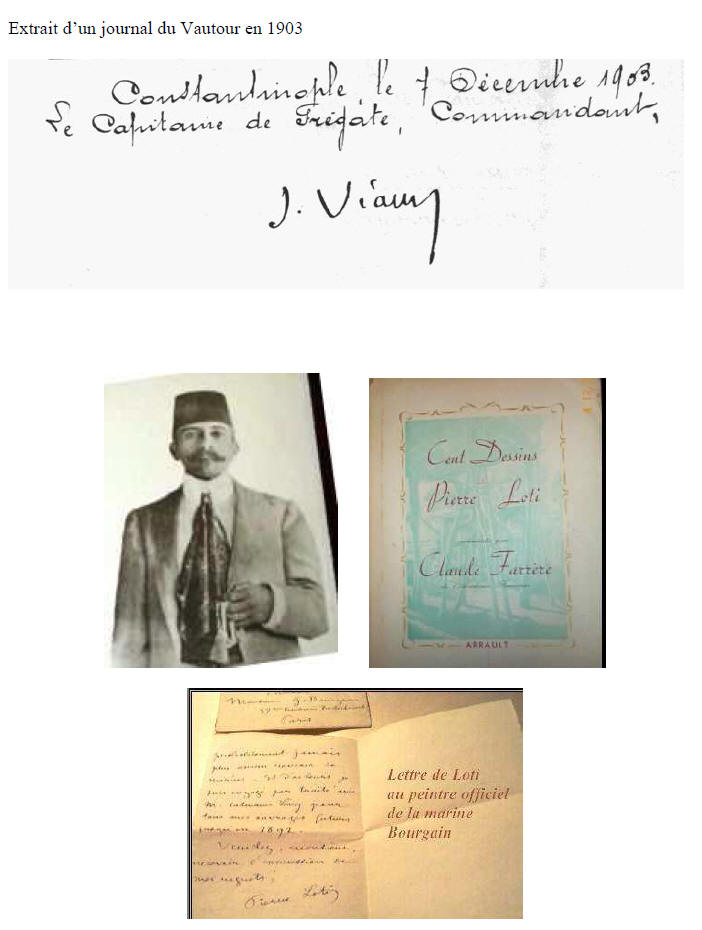 Extrait d’un journal du Vautour en 1903
Constantinople, le 7 Décembre 1903.
Le Capitaine de Frégate, Commandant,
J. Viaud
Cent Dessins
de
Pierre Loti
commentés par
Claude Farrère
de l'Académie Française
ARRAULT
Monsieur G. Bourgain
Paris
probablement jamais
plus
et d'ailleurs je
suis engagé par traité avec
M. Calmann Lévy pour
tous mes ouvrages futurs
jusqu'en 1892.
Veuillez, monsieur,
recevoir l'expression de
mes regrets,
Pierre Loti
Lettre de Loti
au peintre officiel
de la marine
Bourgain